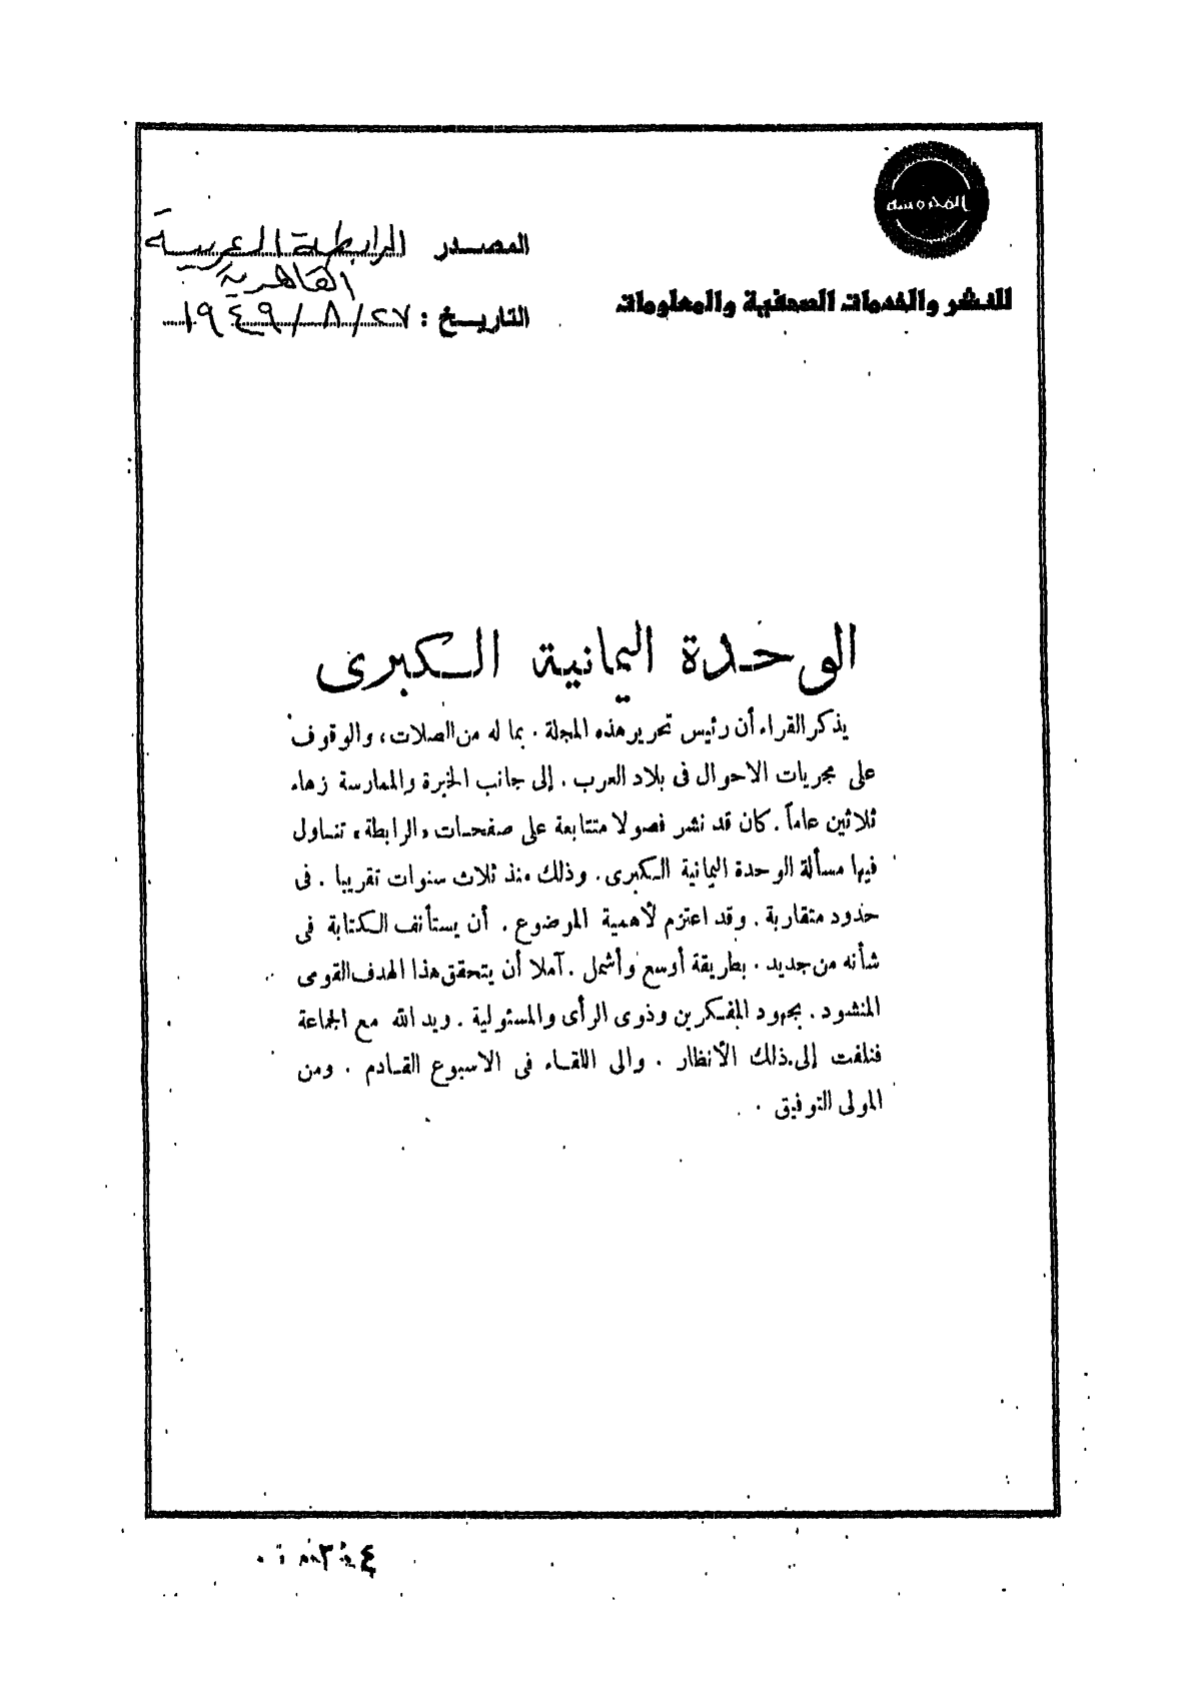 المحروسة
للنشر والخدمات الصحفية والمعلومات
المصدر الرابطة العربية
القاهرية
التاريخ : ٢٧/٨/١٩٤٩
الوحدة اليمانية الكبرى
يذكر القراء أن رئيس تحرير هذه المجلة . بما له من الصلات ، والوقوف
على مجريات الاحوال فى بلاد العرب . إلى جانب الخبرة والممارسة زهاء
ثلاثين عاماً . كان قد نشر فصولا متتابعة على صفحات «الرابطة» تتناول
فيها مسألة الوحدة اليمانية الكبرى . وذلك منذ ثلاث سنوات تقريبا . فى
حدود متقاربة . وقد اعتزم لأهمية الموضوع . أن يستأنف الكتابة فى
شأنه من جديد . بطريقة أوسع وأشمل . آملا أن يتحقق هذا الهدف القومى
المنشود . بجهود المفكرين وذوى الرأى والمسئولية . ويد الله مع الجماعة
فنلفت إلى ذلك الأنظار . والى اللقاء فى الاسبوع القادم . ومن
المولى التوفيق .